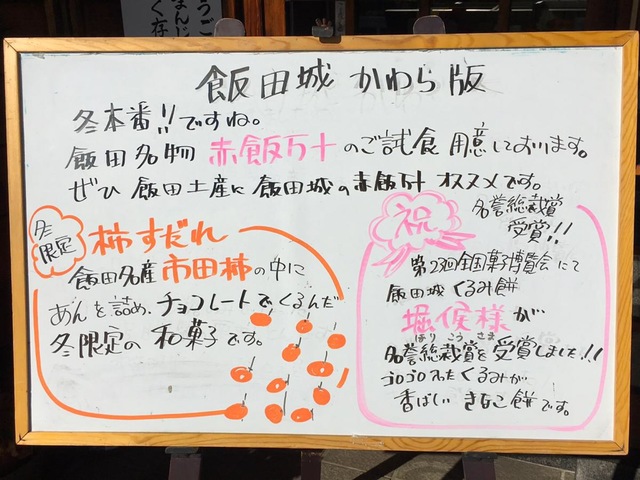 うご
まんじ
く存
飯田城 かわら版
冬本番!!ですね。
飯田名物 赤飯万十のご試食 用意しております。
ぜひ 飯田土産に 飯田城の赤飯万十 オススメです。
冬限定
柿すだれ
飯田名産 市田柿の中に
あんを詰め、チョコレートでくるんだ
冬限定の 和菓子です。
祝
名誉総裁賞
受賞!!
第23回全国菓子博覧会にて
飯田城 くるみ餅
堀候様が
ほり こう さま
名誉総裁賞を 受賞しました!!
ゴロゴロ入ったくるみが
香ばしい きなこ餅です。